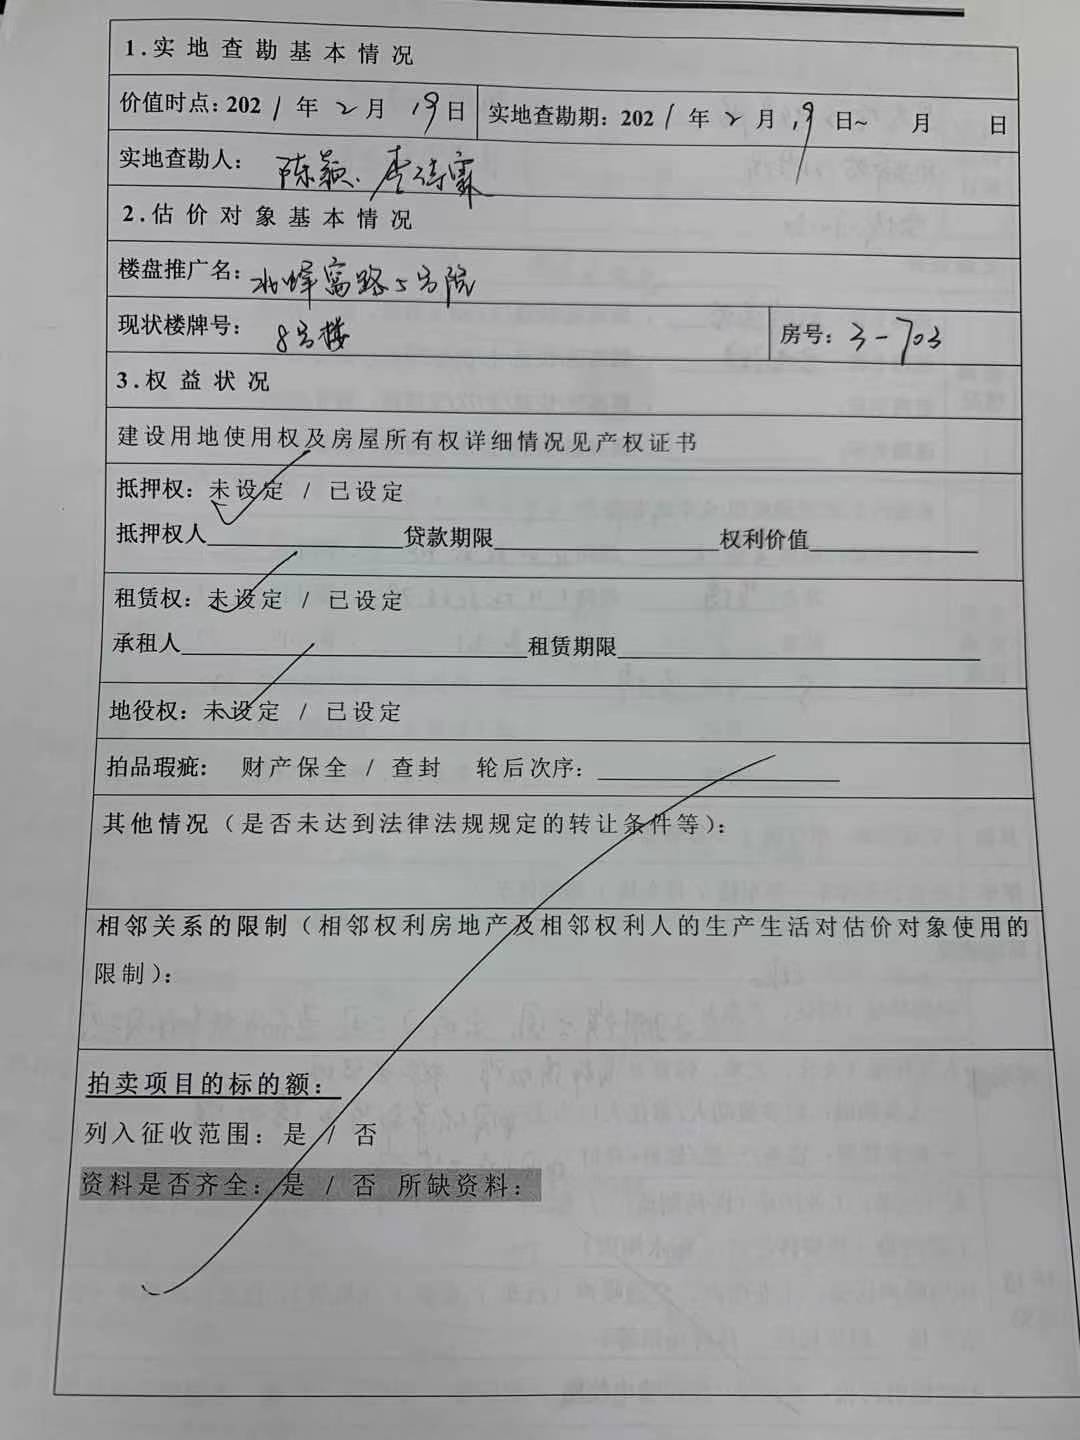 1.实地查勘基本情况
价值时点：2021年2月19日 实地查勘期：2021年2月19日~ 月 日
实地查勘人：陈颖、李诗霖
2.估价对象基本情况
楼盘推广名：北蜂窝路5号院
现状楼牌号：8号楼 房号：3-703
3.权益状况
建设用地使用权及房屋所有权详细情况见产权证书
抵押权：未设定 / 已设定
抵押权人 贷款期限 权利价值
租赁权：未设定 / 已设定
承租人 租赁期限
地役权：未设定 / 已设定
拍品瑕疵： 财产保全 / 查封 轮后次序：
其他情况（是否未达到法律法规规定的转让条件等）：
相邻关系的限制（相邻权利房地产及相邻权利人的生产生活对估价对象使用的
限制）：
拍卖项目的标的额：
列入征收范围：是 / 否
资料是否齐全：是 / 否 所缺资料：